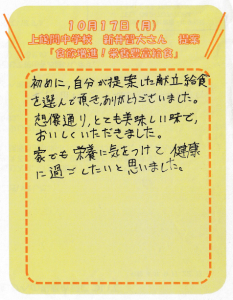 10月17日(月)
上越間中学校 新井智大さん 提案
「食欲増進!栄養満点給食」
初めに、自分が提案した献立給食
を選んで頂き、ありがとうございました。
想像通り、とても美味しい味で、
おいしくいただきました。
家でも栄養に気をつけて健康
に過ごしたいと思いました。